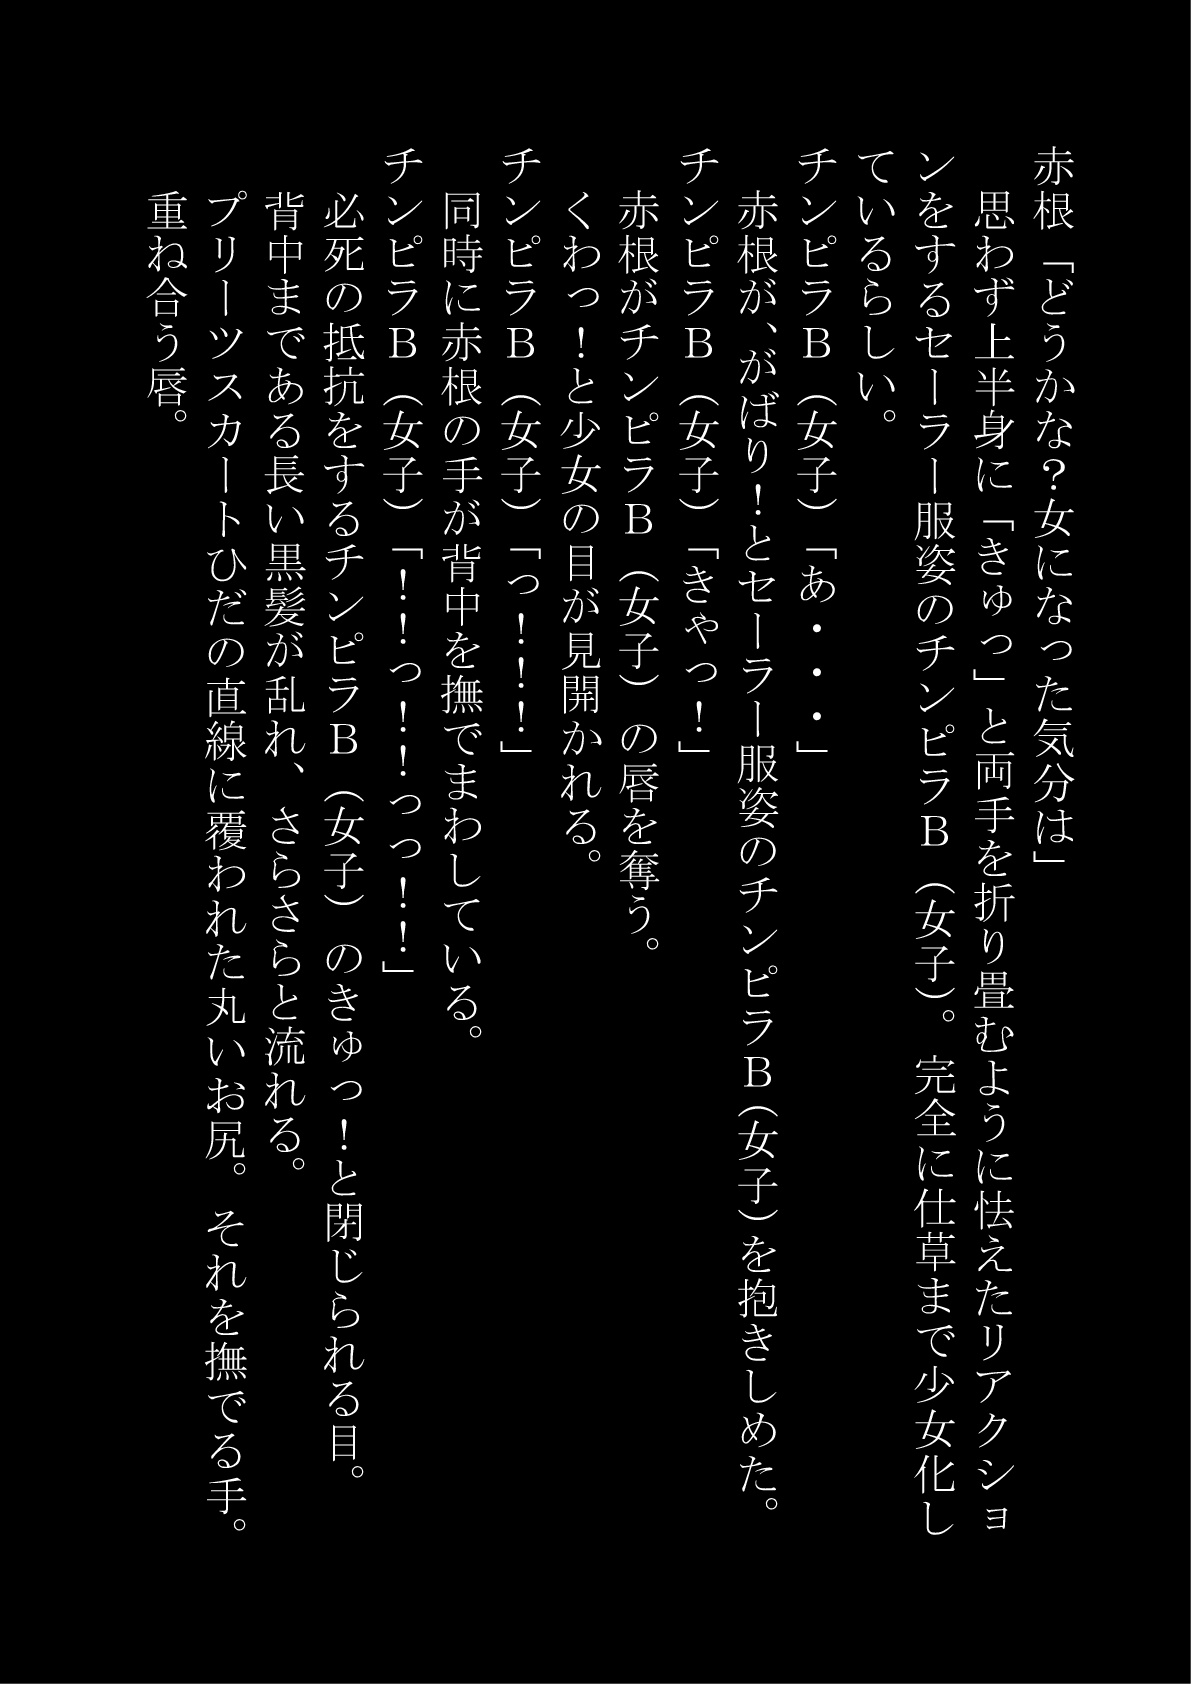 赤根「どうかな？女になった気分は」
思わず上半身に「きゅっ」と両手を折り畳むように怯えたリアクショ
ンをするセーラー服姿のチンピラＢ（女子）。完全に仕草まで少女化し
ているらしい。
チンピラＢ（女子）「あ・・・」
赤根が、がばり！とセーラー服姿のチンピラＢ（女子）を抱きしめた。
チンピラＢ（女子）「きゃっ！」
赤根がチンピラＢ（女子）の唇を奪う。
くわっ！と少女の目が見開かれる。
チンピラＢ（女子）「っ！！！」
同時に赤根の手が背中を撫でまわしている。
チンピラＢ（女子）「！！っ！！っっ！！」
必死の抵抗をするチンピラＢ（女子）のきゅっ！と閉じられる目。
背中まである長い黒髪が乱れ、さらさらと流れる。
プリーツスカートひだの直線に覆われた丸いお尻。それを撫でる手。
重ね合う唇。